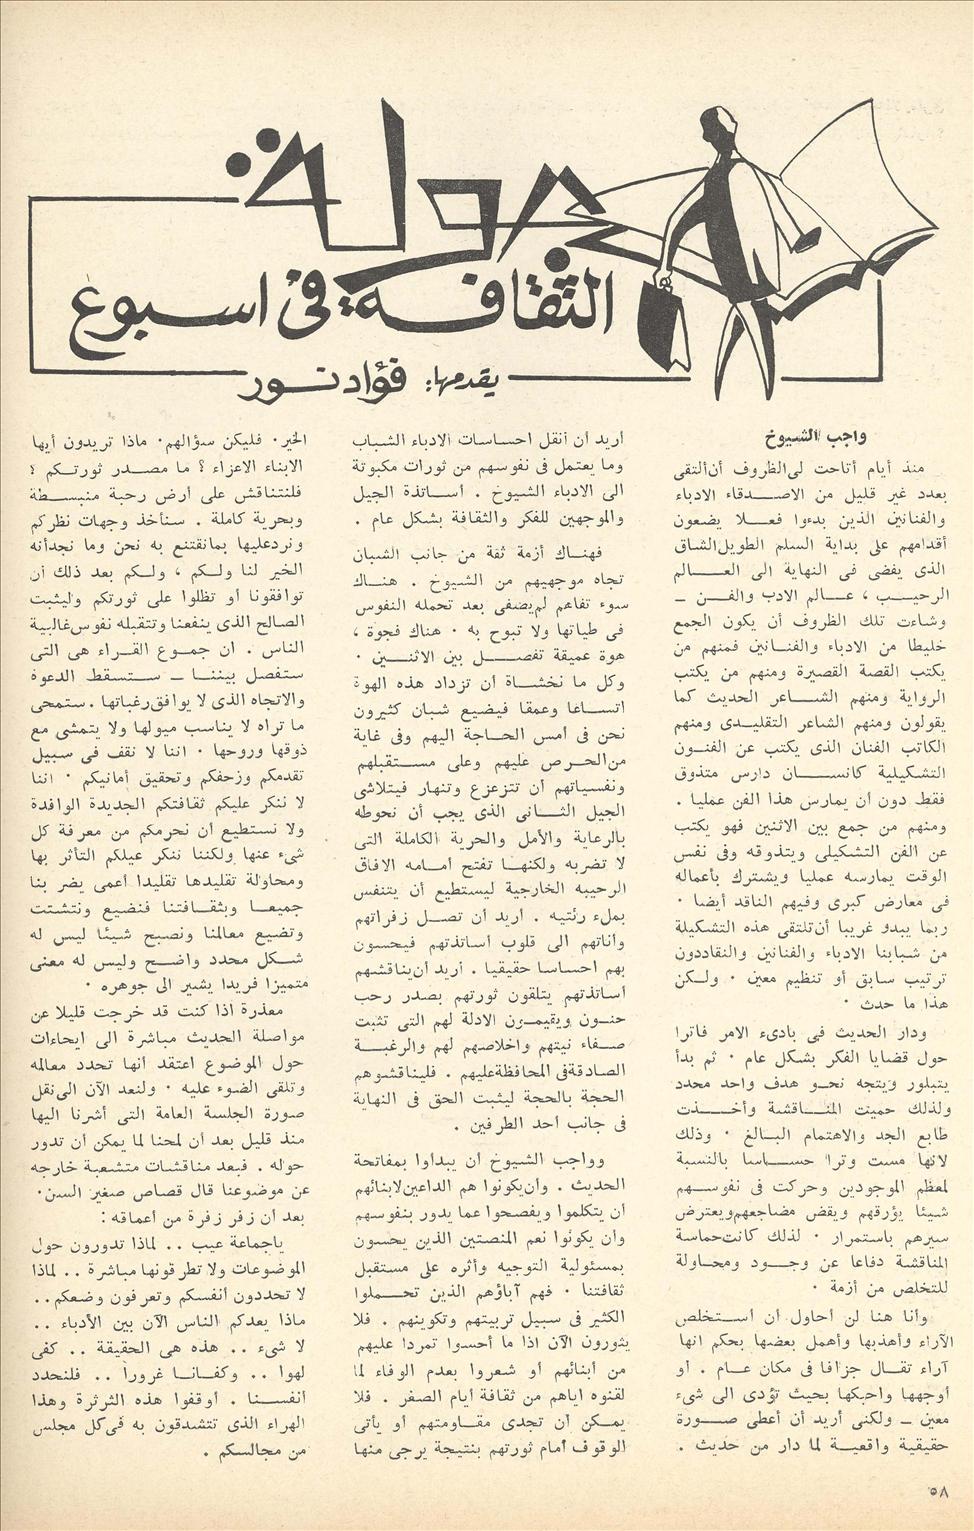 جولة
الثقافة فى اسبوع
يقدمها: فؤاد نور
واجب الشيوخ
منذ أيام أتاحت لى الظروف أن ألتقى
بعدد غير قليل من الاصدقاء الادباء
والفنانين الذين بدءوا فعلا يضعون
أقدامهم على بداية السلم الطويل الشاق
الذى يفضى فى النهاية الى العالم
الرحيب ، عالم الادب والفن ـ
وشاءت تلك الظروف أن يكون الجمع
خليطا من الادباء والفنانين فمنهم من
يكتب القصة القصيرة ومنهم من يكتب
الرواية ومنهم الشاعر الحديث كما
يقولون ومنهم الشاعر التقليدى ومنهم
الكاتب الفنان الذى يكتب عن الفنون
التشكيلية كانسان دارس متذوق
فقط دون أن يمارس هذا الفن عمليا .
ومنهم من جمع بين الاثنين فهو يكتب
عن الفن التشكيلى ويتذوقه وفى نفس
الوقت يمارسه عمليا ويشترك بأعماله
فى معارض كبرى وفيهم الناقد أيضا .
ربما يبدو غريبا أن تلتقى هذه التشكيلة
من شبابنا الادباء والفنانين والنقاد دون
ترتيب سابق أو تنظيم معين . ولكن
هذا ما حدث .
ودار الحديث فى بادىء الامر فاترا
حول قضايا الفكر بشكل عام . ثم بدأ
يتبلور ويتجه نحو هدف واحد محدد
ولذلك حميت المناقشة وأخذت
طابع الجد والاهتمام البالغ . وذلك
لانها مست وترا حساسا بالنسبة
لمعظم الموجودين وحركت فى نفوسهم
شيئا يؤرقهم ويقض مضاجعهم ويعترض
سيرهم باستمرار . لذلك كانت حماسة
المناقشة دفاعا عن وجود ومحاولة
للتخلص من أزمة .
وأنا هنا لن أحاول أن أستخلص
الآراء وأهذبها وأهمل بعضها بحكم انها
آراء تقال جزافا فى مكان عام . أو
أوجهها واحبكها بحيث تؤدى الى شىء
معين ـ ولكنى أريد أن أعطى صورة
حقيقية واقعية لما دار من حديث .
أريد أن أنقل احساسات الادباء الشباب
وما يعتمل فى نفوسهم من ثورات مكبوتة
الى الادباء الشيوخ . أساتذة الجيل
والموجهين للفكر والثقافة بشكل عام .
فهناك أزمة ثقة من جانب الشبان
تجاه موجهيهم من الشيوخ . هناك
سوء تفاهم لم يصفى بعد تحمله النفوس
فى طياتها ولا تبوح به . هناك فجوة ،
هوة عميقة تفصل بين الاثنين .
وكل ما نخشاه أن تزداد هذه الهوة
اتساعا وعمقا فيضيع شبان كثيرون
نحن فى أمس الحاجة اليهم وفى غاية
من الحرص عليهم وعلى مستقبلهم
ونفسياتهم أن تتزعزع وتنهار فيتلاشى
الجيل الثانى الذى يجب أن نحوطه
بالرعاية والأمل والحرية الكاملة التى
لا تضر به ولكنها تفتح أمامه الافاق
الرحيبه الخارجية ليستطيع أن يتنفس
بملء رئتيه . أريد أن تصل زفراتهم
وأناتهم الى قلوب أساتذتهم فيحسون
بهم احساسا حقيقيا . أريد أن يناقشهم
أساتذتهم يتلقون ثورتهم بصدر رحب
حنون ويقيمون الادلة لهم التى تثبت
صفاء نيتهم واخلاصهم لهم والرغبة
الصادقة فى المحافظة عليهم . فليناقشوهم
الحجة بالحجة ليثبت الحق فى النهاية
فى جانب أحد الطرفين .
وواجب الشيوخ أن يبدأوا بمفاتحة
الحديث . وأن يكونوا هم الداعين لابنائهم
أن يتكلموا ويفصحوا عما يدور بنفوسهم
وأن يكونوا نعم المنصتين الذين يحسون
بمسئولية التوجيه وأثره على مستقبل
ثقافتنا . فهم آباؤهم الذين تحملوا
الكثير فى سبيل تربيتهم وتكوينهم . فلا
يثورون الآن اذا ما أحسوا تمردا عليهم
من أبنائهم أو شعروا بعدم الوفاء لما
لقنوه اياهم من ثقافة أيام الصغر . فلا
يمكن أن تجدى مقاومتهم أو يأتى
الوقوف أمام ثورتهم بنتيجة يرجى منها
الخير . فليكن سؤالهم . ماذا تريدون أيها
الابناء الاعزاء ؟ ما مصدر ثورتكم ؟
فلنتناقش على أرض رحبة منبسطة
وبحرية كاملة . سنأخذ وجهات نظركم
ونرد عليها بما نقتنع به نحن وما نجد أنه
الخير لنا ولكم ، ولكم بعد ذلك أن
توافقونا أو تظلوا على ثورتكم وليثبت
الصالح الذى ينفعنا وتتقبله نفوس غالبية
الناس . ان جموع القراء هى التى
ستفصل بيننا ـ ستسقط الدعوة
والاتجاه الذى لا يوافق رغباتها . ستمحى
ما تراه لا يناسب ميولها ولا يتمشى مع
ذوقها وروحها . اننا لا نقف فى سبيل
تقدمكم وزحفكم وتحقيق أمانيكم . اننا
لا ننكر عليكم ثقافتكم الجديدة الوافدة
ولا نستطيع أن نحرمكم من معرفة كل
شىء عنها ولكننا ننكر عيلكم التأثر بها
ومحاولة تقليدها تقليدا أعمى يضر بنا
جميعا وبثقافتنا فنضيع ونتشتت
وتضيع معالمنا ونصبح شيئا ليس له
شكل محدد واضح وليس له معنى
متميزا فريدا يشير الى جوهره .
معذرة اذا كنت قد خرجت قليلا عن
مواصلة الحديث مباشرة الى ايحاءات
حول الموضوع اعتقد أنها تحدد معالمه
وتلقى الضوء عليه . ولنعد الآن الى نقل
صورة الجلسة العامة التى أشرنا اليها
منذ قليل بعد أن لمحنا لما يمكن أن تدور
حوله . فبعد مناقشات متشعبة خارجه
عن موضوعنا قال قصاص صغير السن .
بعد أن زفر زفرة من أعماقه :
ياجماعة عيب .. لماذا تدورون حول
الموضوعات ولا تطرقونها مباشرة .. لماذا
لا تحددون أنفسكم وتعرفون وضعكم ..
ماذا يعدكم الناس الآن بين الأدباء ..
لا شىء .. هذه هى الحقيقة .. كفى
لهوا .. وكفانا غرورا .. فلنحدد
أنفسنا . أوقفوا هذه الثرثرة وهذا
الهراء الذى تتشدقون به فى كل مجلس
من مجالسكم .
٥٨